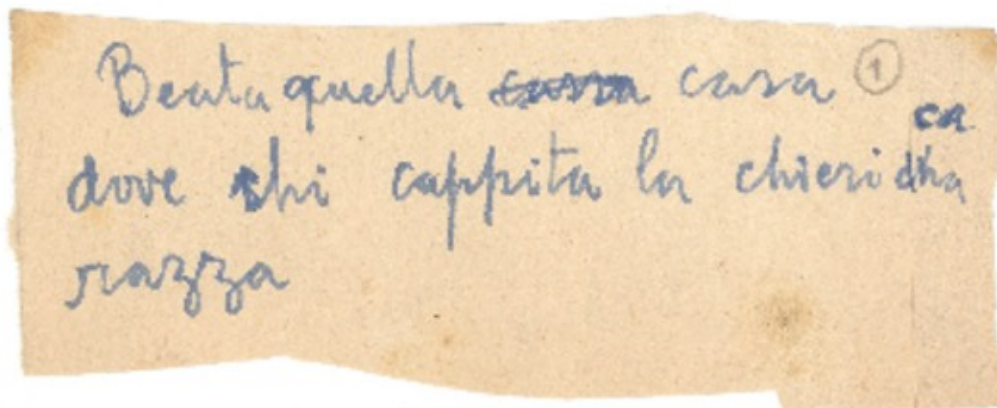 Beata quella casa casa 1
dove chi cappita la chierica
razza